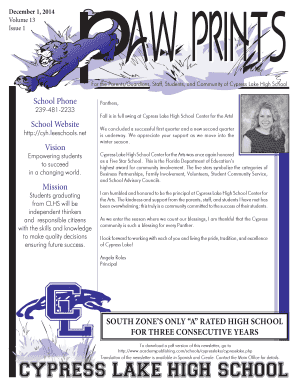 December 1, 2014
Volume 13
Issue 1
PAW PRINTS
For the Parents, Guardians, Staff, Students, and Community of Cypress Lake High School
School Phone
239-481-2233
School Website
http://cyh.leeschools.net
Vision
Empowering students
to succeed
in a changing world.
Mission
Students graduating
from CLHS will be
independent thinkers
and responsible citizens
with the skills and knowledge
to make quality decisions
ensuring future success.
Panthers,
Fall is in full swing at Cypress Lake High School Center for the Arts!
We concluded a successful first quarter and a new second quarter
is underway. We appreciate your support as we move into the
winter season.
Cypress Lake High School Center for the Arts was once again honored
as a Five Star School. This is the Florida Department of Education's
highest award for community involvement. The five stars symbolize the categories of
Business Partnerships, Family Involvement, Volunteers, Student Community Service,
and School Advisory Councils.
I am humbled and honored to be the principal at Cypress Lake High School Center for
the Arts. The kindness and support from the parents, staff, and students I have met has
been overwhelming. This truly is a community committed to the success of their students.
As we enter the season where we count our blessings, I am thankful that the Cypress
community is such a blessing for every Panther.
I look forward to working with each of you and living the pride, tradition, and excellence
of Cypress Lake!
Angela Roles
Principal
CL
SOUTH ZONE'S ONLY "A" RATED HIGH SCHOOL
FOR THREE CONSECUTIVE YEARS
To download a pdf version of this newsletter, go to
Translation of the newsletter is available in Spanish and Creole. Contact the Main Office for details.
CYPRESS LAKE HIGH SCHOOL